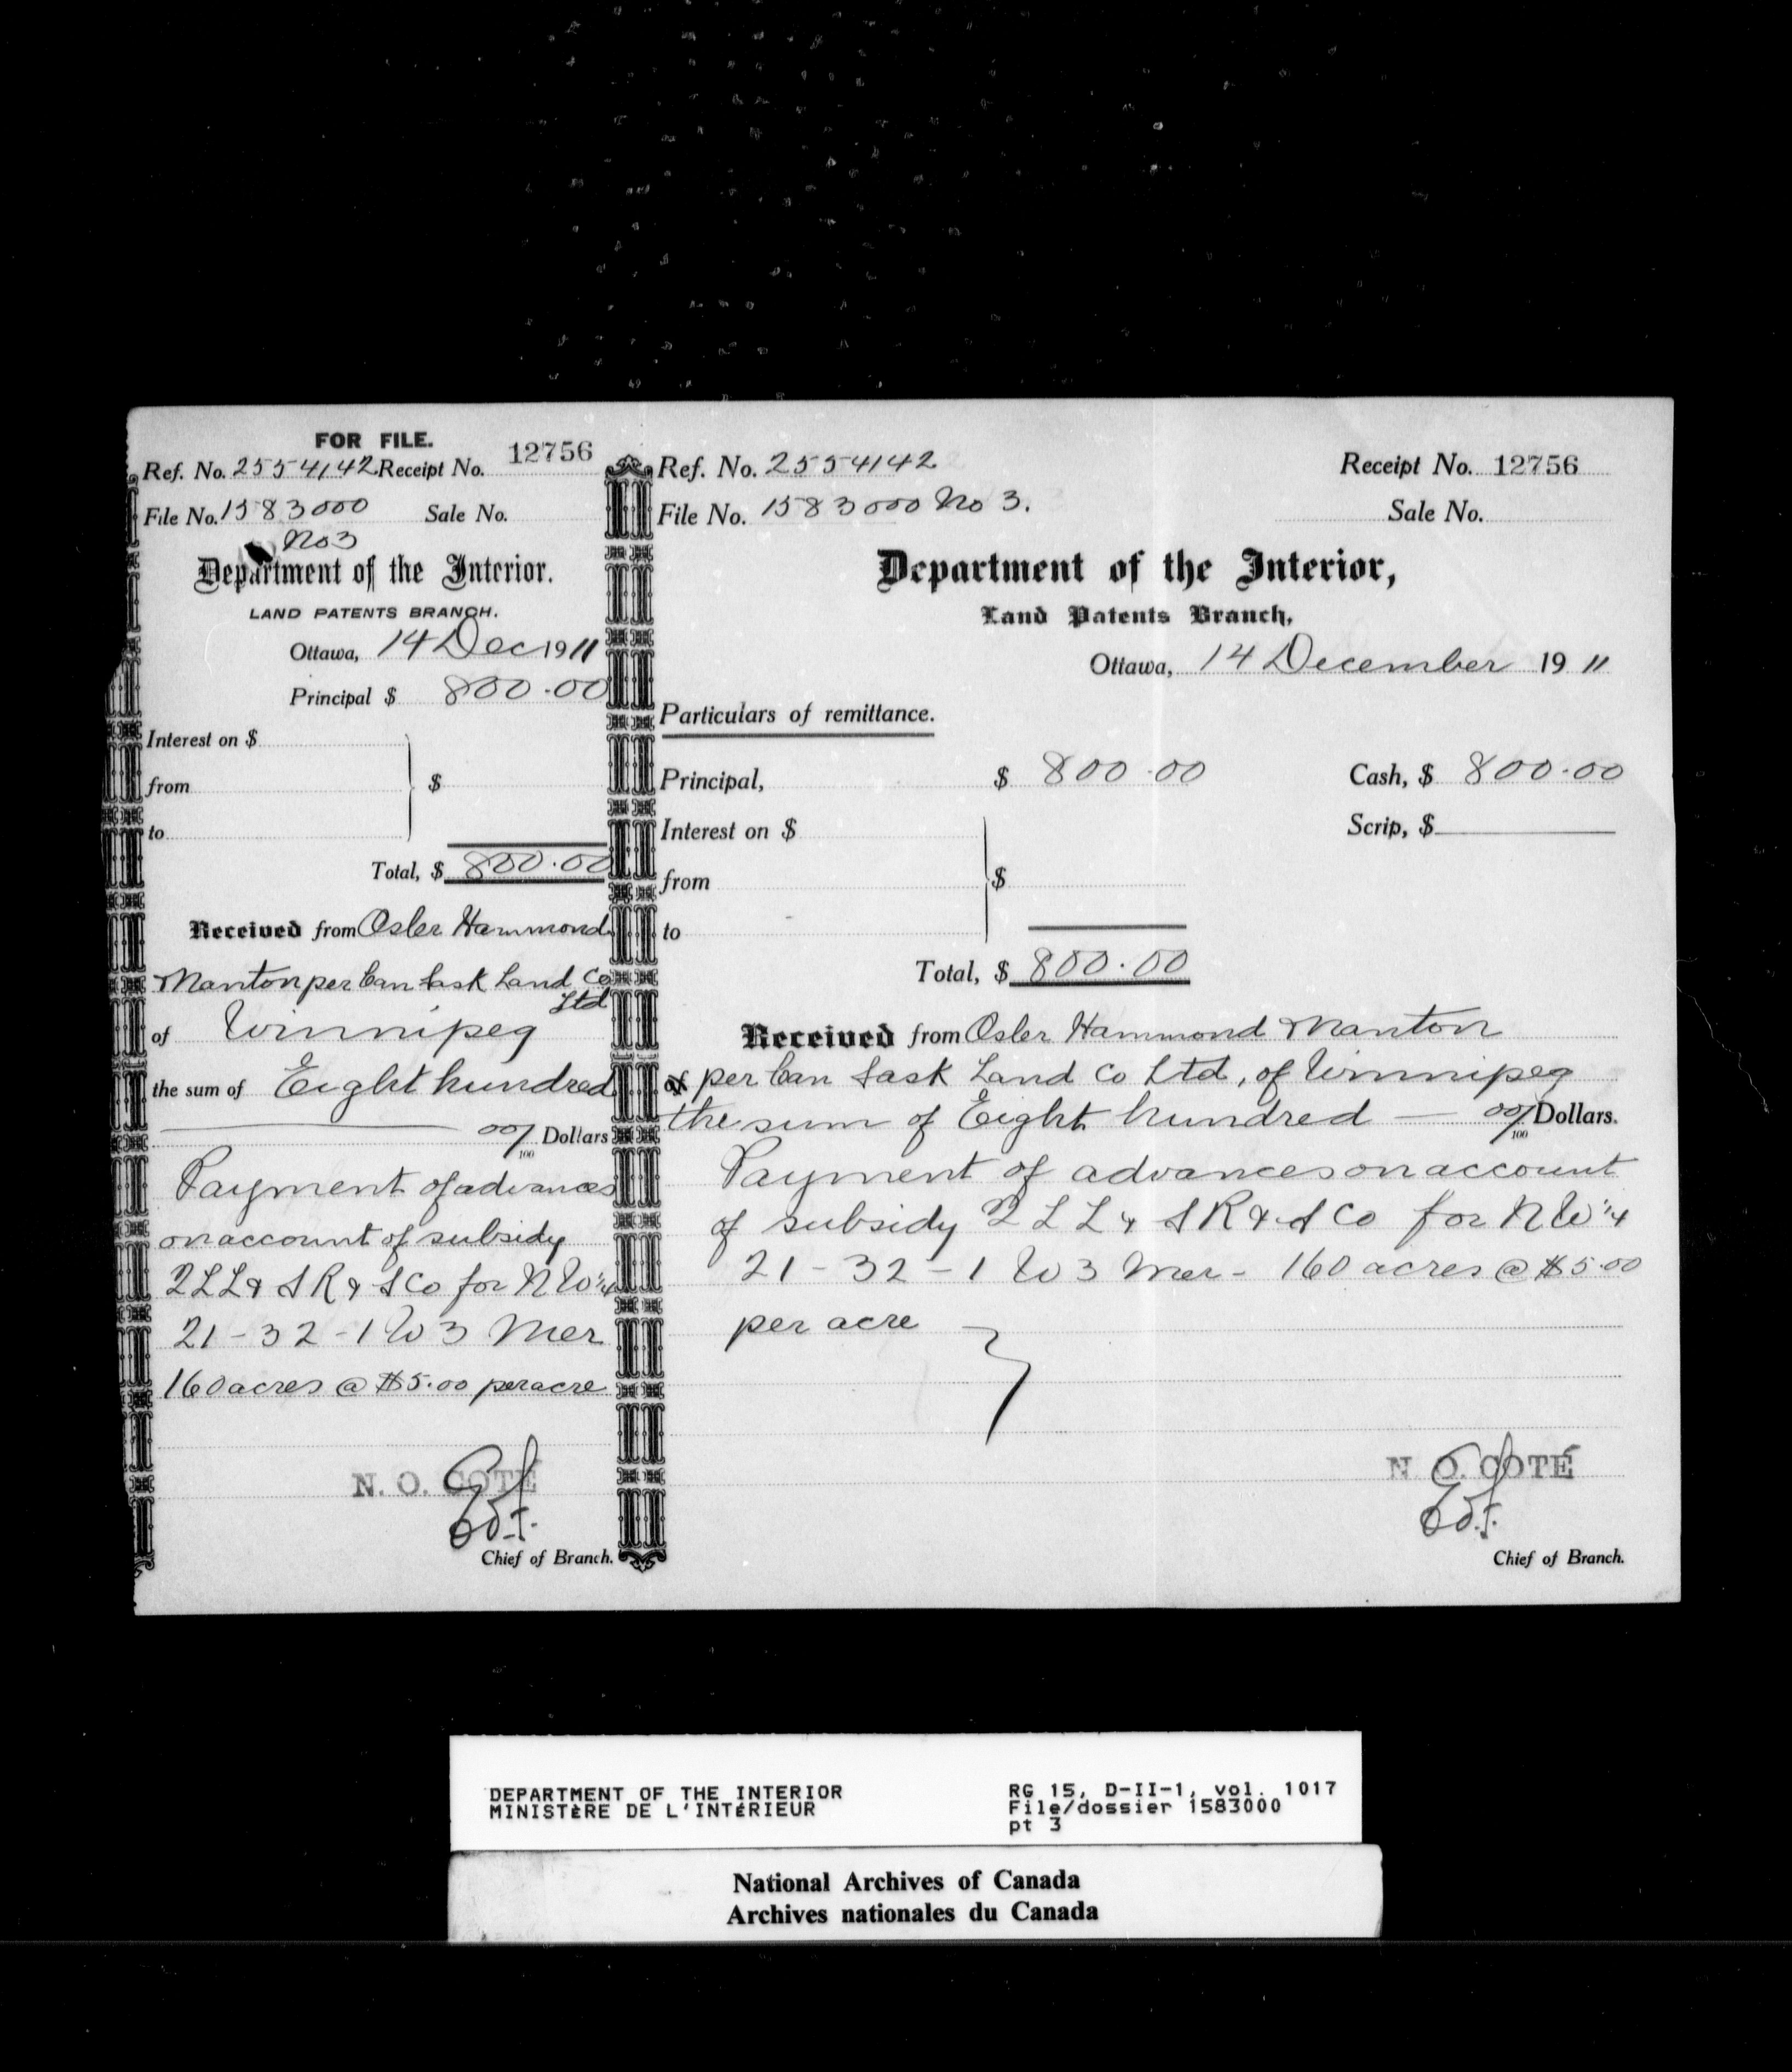 FOR FILE.
Ref. No. 2554142 Receipt No. 12756
File No. 1583000 Sale No.
No 3
Department of the Interior.
LAND PATENTS BRANCH.
Ottawa, 14 Dec 1911
Principal $ 800.00
Interest on $
from $
to
Total, $ 800.00
Received from Osler Hammond
Manton per Can Sask Land Co
Ltd
of Winnipeg
the sum of Eight hundred
00/100 Dollars
Payment of advances
on account of subsidy
2 L L & S R & S Co for N W 1/4
21-32-1 W 3 Mer
160 acres @ $5.00 per acre
N. O. COTÉ
Chief of Branch.
Ref. No. 2554142 Receipt No. 12756
File No. 1583000 No 3. Sale No.
Department of the Interior,
Land Patents Branch,
Ottawa, 14 December 1911
Particulars of remittance.
Principal, $ 800.00 Cash, $ 800.00
Interest on $ Scrip, $
from $
to
Total, $ 800.00
Received from Osler Hammond Manton
of per Can Sask Land Co Ltd, of Winnipeg
the sum of Eight hundred — 00/100 Dollars.
Payment of advances on account
of subsidy 2 L L & S R & S Co for N W 1/4
21-32-1 W 3 Mer - 160 acres @ $5.00
per acre
N. O. COTÉ
Chief of Branch.
DEPARTMENT OF THE INTERIOR RG 15, D-II-1, vol. 1017
MINISTÈRE DE L'INTÉRIEUR File/dossier 1583000
pt 3
National Archives of Canada
Archives nationales du Canada